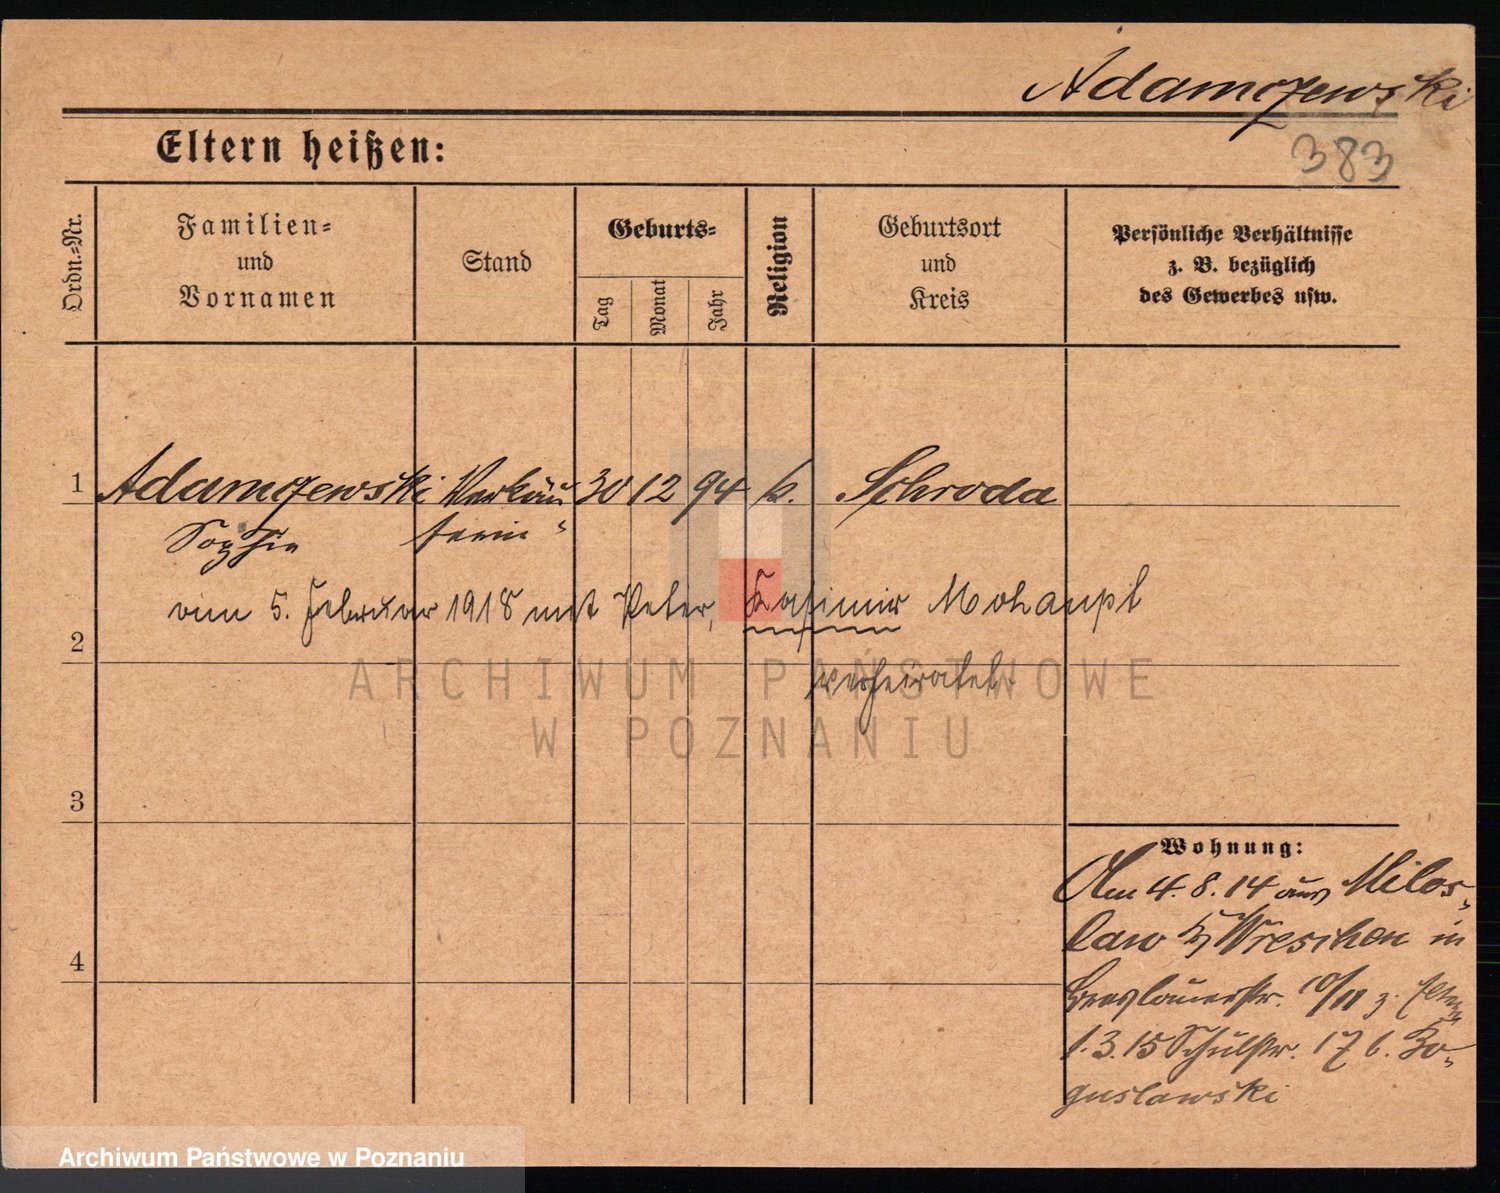 Adamczewski
383
Eltern heißen:
Ordn.-Nr.
Familien- und Vornamen
Stand
Geburts-
Tag
Monat
Jahr
Religion
Geburtsort und Kreis
Persönliche Verhältnisse z. B. bezüglich des Gewerbes usw.
1 Adamczewski Verkäu 30 12 94 k. Schroda
Sophie ferin
vom 5. Februar 1918 mit Peter, Kasimir Mohaupt
2
verheiratet.
ARCHIWUM PAŃSTWOWE
W POZNANIU
3
Wohnung:
Am 4. 8. 14 aus Milos-
law Kr Wreschen in
4
Breslauerstr. 10/11 z. Eltern
1. 3. 15 Schulstr. 17 b. Bo-
guslawski
Archiwum Państwowe w Poznaniu